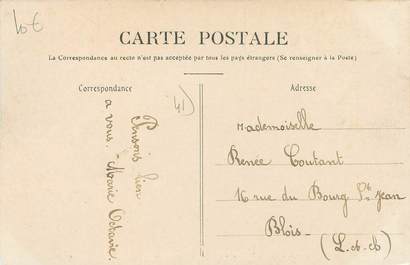 10€
CARTE POSTALE
La Correspondance au recto n'est pas acceptée par tous les pays étrangers (Se renseigner à la Poste)
Correspondance
Adresse
41
Pensons bien
a vous.
Marie Octavie.
Mademoiselle
Renée Coutant
16 rue du Bourg St Jean
Blois
(L.-et-Ch)